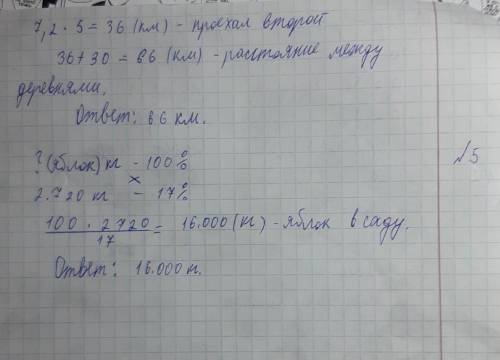 7,2 · 5 = 36 (км) - проехал второй
36 + 30 = 66 (км) - расстояние между
деревнями.
Ответ: 66 км.
? (яблок) кг - 100%
№5
×
2.720 кг - 17%
100 · 2720 / 17 = 16.000 (кг) - яблок в саду.
Ответ: 16.000 кг.